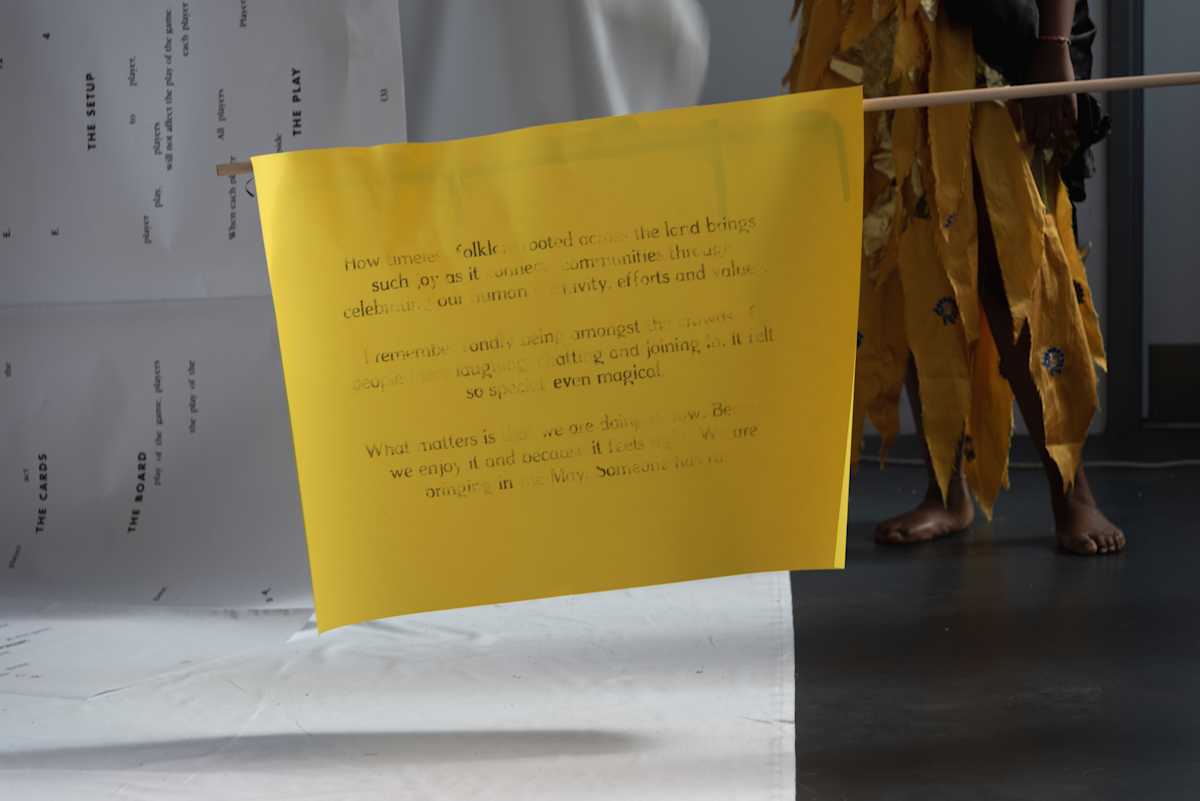 How folklore rooted across the land brings
such joy as it connects communities through
celebrating our human creativity, efforts and values.
I remember fondly being amongst the crowds of
people laughing, chatting and joining in. It felt
so special, even magical.
What matters is that we are doing it now. Because
we enjoy it and because it feels right. We are
bringing in the May. Someone has to.
THE SETUP
player to player.
players
will not affect the play of the game
each player
Player
player play.
All players
When each player
THE PLAY
(3)
E.
F.
4
the
act
THE CARDS
THE BOARD
play of the game. players
the play of the